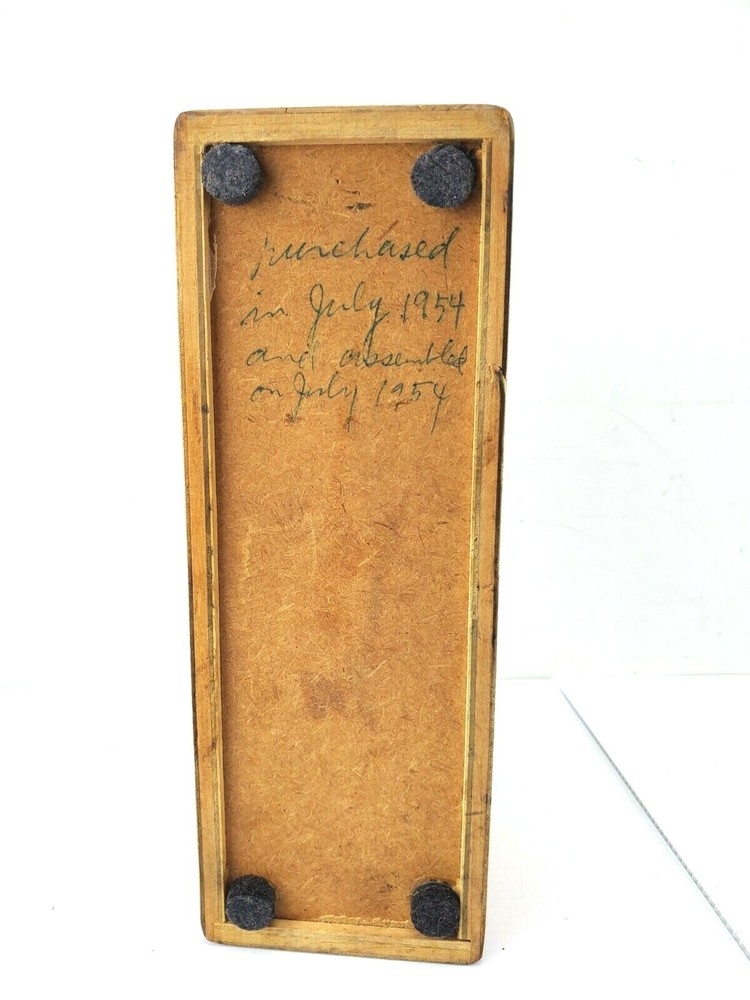 purchased
in July 1954
and assembled
on July 1954